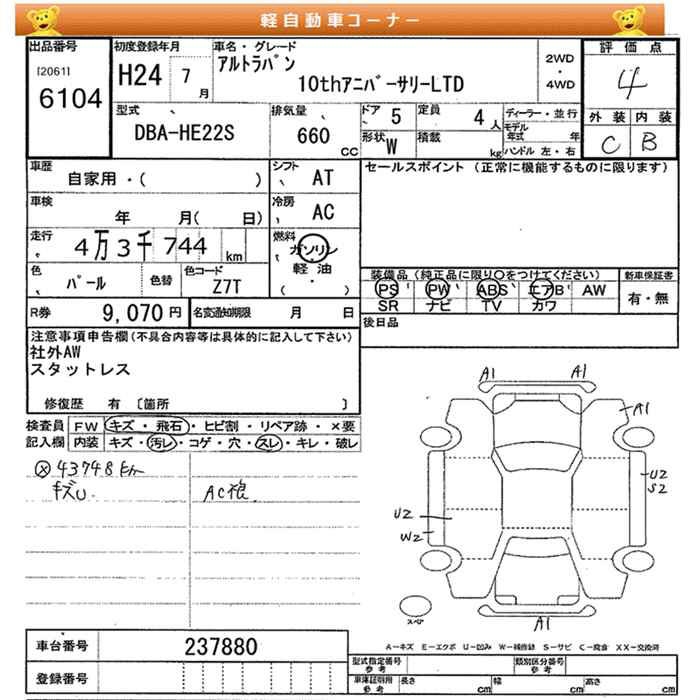 軽自動車コーナー
出品番号 初度登録年月 車名・グレード 2WD 評価点
[2061] H24 7 月 アルトラパン ・ 4
6104 10thアニバーサリーLTD 4WD
型式 排気量 ドア 5 定員 4人 ディーラー・並行 外装 内装
DBA-HE22S 660 cc 形状 W 積載 kg モデル年式 年 C B
ハンドル 左・右
車歴 シフト セールスポイント (正常に機能するものに限ります)
自家用・( ) AT
車検 冷房
年 月( 日) AC
走行 燃料
4万3千744 km ガソリン
軽油
( ・ )
色 パール 色替 色コード Z7T
装備品 (純正品に限り〇をつけてください) 新車保証書
PS PW ABS エアB AW 有・無
SR ナビ TV カワ
R券 9,070円 名変通知期限 月 日
後日品
注意事項申告欄(不具合内容等は具体的に記入して下さい)
社外AW
スタットレス
修復歴 有 〔箇所 〕
検査員 FW キズ・飛石・ヒビ割・リペア跡・×要
記入欄 内装 キズ・汚レ・コゲ・穴・スレ・キレ・破レ
43748km
キズU AC
A1 A1
A1
U2
S2
U2
W2
スペア A1
A－キズ E－エクボ U－凹み W－補修跡 S－サビ C－腐食 XX－交換済
車台番号 237880
登録番号
型式指定番号 参考 類別区分番号 参考
車庫証明用 参考 長さ cm 幅 cm 高さ cm